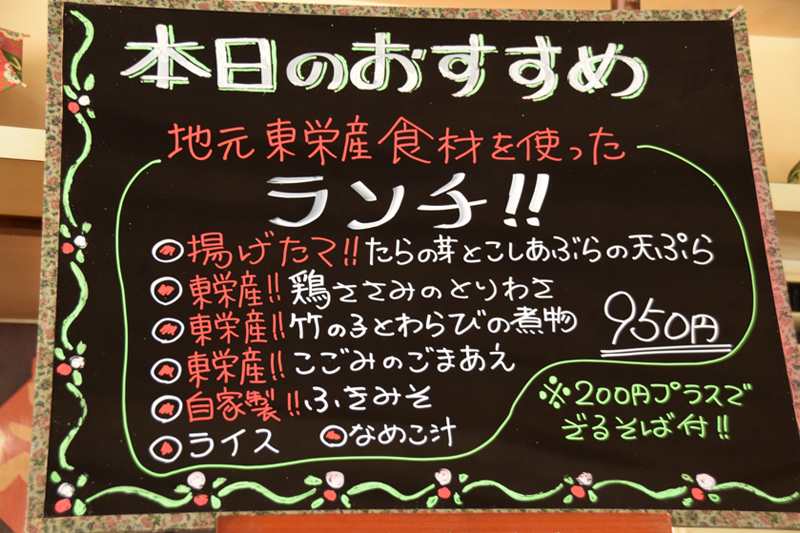 本日のおすすめ
地元東栄産食材を使った
ランチ!!
◉揚げたて!!たらの芽とこしあぶらの天ぷら
◉東栄産!!鶏ささみのとりわさ
◉東栄産!!竹の子とわらびの煮物
950円
◉東栄産!!こごみのごまあえ
◉自家製!!ふきみそ
◉ライス ◉なめこ汁
※200円プラスで
ざるそば付!!